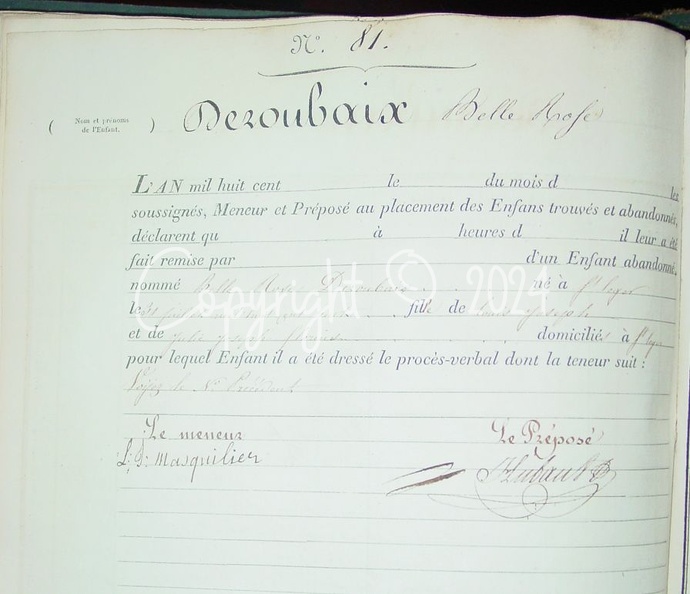 N.° 81.
( Nom et prénoms de l'Enfant. ) Deroubaix Belle Rose
L'AN mil huit cent le du mois d les
soussignés, Meneur et Préposé au placement des Enfans trouvés et abandonnés,
déclarent qu à heures d il leur a été
fait remise par d'un Enfant abandonné,
nommé Belle Rose Deroubaix né à St Leger
le fille de Louis Joseph
et de domiciliés à St Leger
pour lequel Enfant il a été dressé le procès-verbal dont la teneur suit :
Voyez le N.° Précédent
Le meneur Le Préposé
L. J. Masquilier
Copyright © 2024